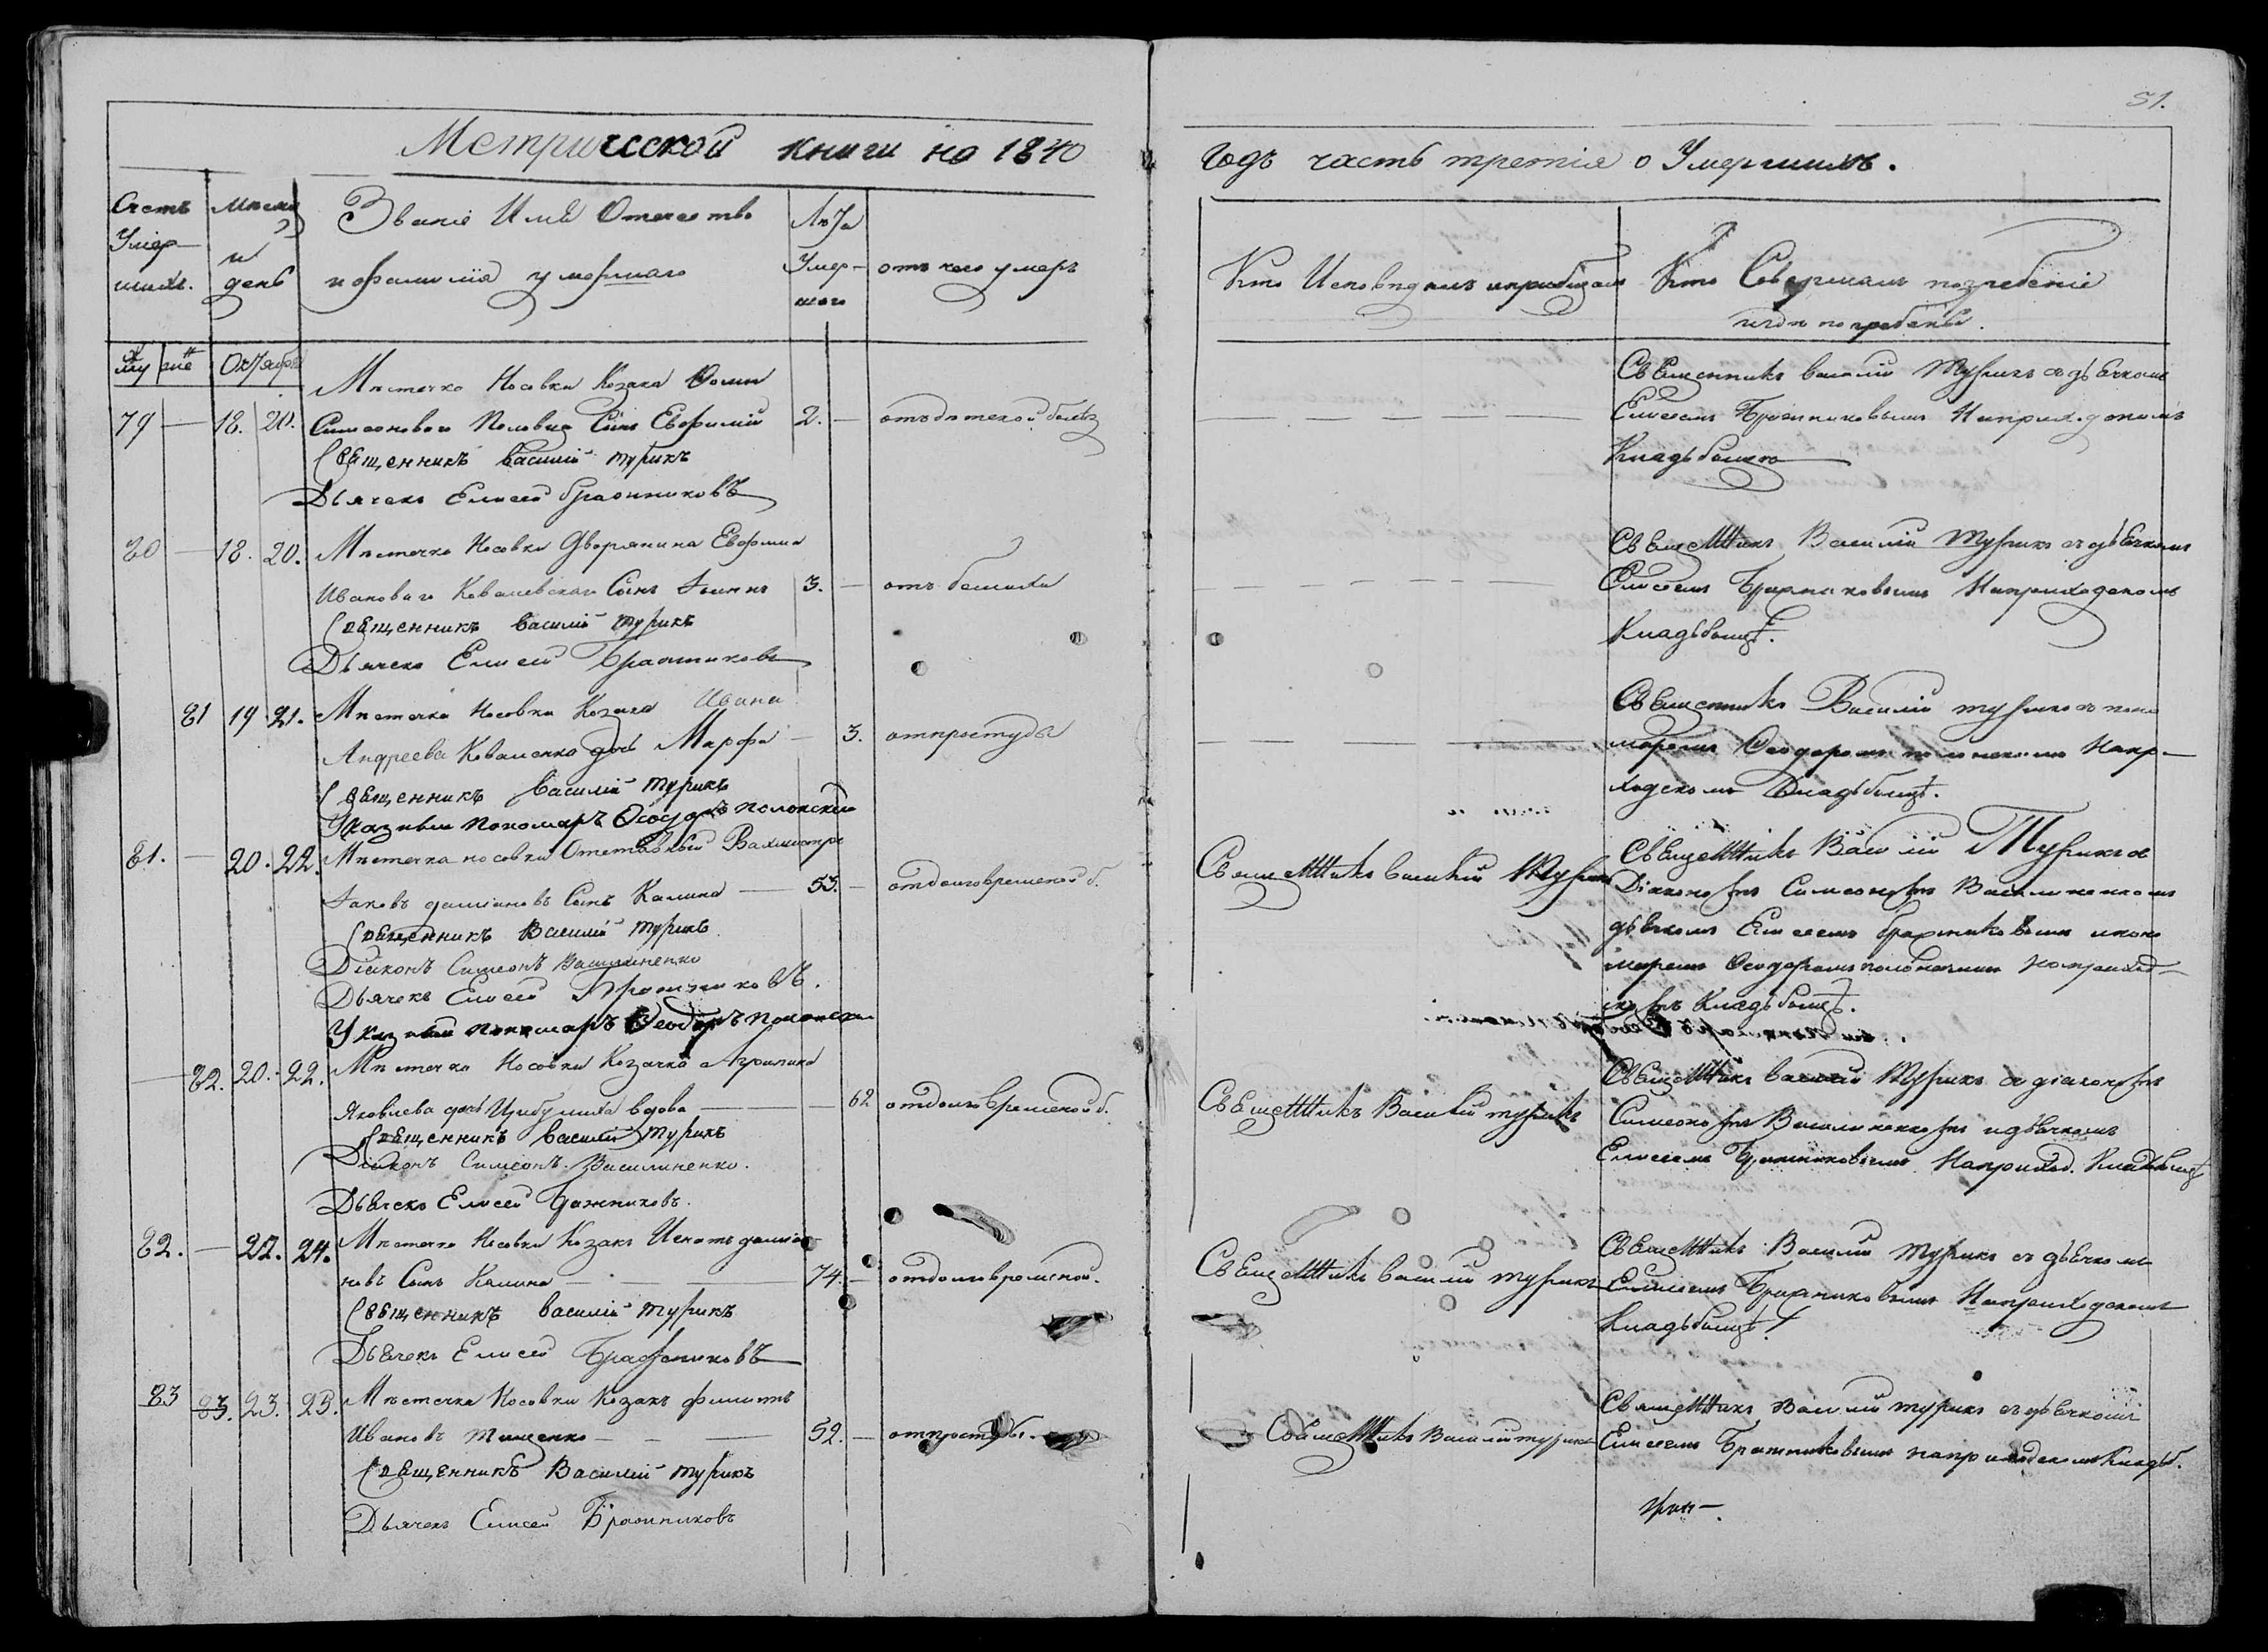 51.
Метрической книги на 1840
годъ часть третія о Умершихъ.
Счетъ Умер- шихъ.
Мѣсяцъ и день
Званіе Имя Отечество
и фамилія умершаго
Лѣта Умер- шаго
отъ чего умеръ
Кто Исповѣдалъ и пріобщалъ
Кто Совершалъ погребеніе
и гдѣ погребены.
му же Октября
Мѣстечка Носовки Козака Фомы
79 — 18. 20. Симеонова Половца Сынъ Евфимій 2. — отъ дѣтской болѣз
Священникъ Василій Турикъ
Дьячекъ Елисей Бражниковъ
Священникъ Василій Турикъ съ дьячкомъ
Елисеемъ Бражниковымъ На приходскомъ
Кладьбищѣ
80 — 18. 20. Мѣстечка Носовки Дворянина Евфимія
Иванова Ковалевскаго Сынъ Іоаннъ 3. — отъ
Священникъ Василій Турикъ
Дьячекъ Елисей Бражниковъ
Священникъ Василій Турикъ съ дьячкомъ
Елисеемъ Бражниковымъ На приходскомъ
Кладьбищѣ.
81 19 21. Мѣстечка Носовки Козака Ивана
Андреева Коваленка дочь Марфа — 3. отъ простуды
Священникъ Василій Турикъ
Указный пономарь Ѳеодоръ Полонскій
Священникъ Василій Турикъ съ поно
маремъ Ѳеодоромъ Полонскимъ На при-
ходскомъ Кладьбищѣ.
81. — 20. 22. Мѣстечка Носовки Отставный Вахмистръ
Іаковъ Даміановъ Сынъ Калина — 53. — отъ долговременной б.
Священникъ Василій Турикъ
Діаконъ Симеонъ Василиненко
Дьячекъ Елисей Бражниковъ.
Указный пономарь Ѳеодоръ Полонскій
Священникъ Василій Турикъ
Священникъ Василій Турикъ съ
Діакономъ Симеономъ Василиненкомъ
дьячкомъ Елисеемъ Бражниковымъ и поно
маремъ Ѳеодоромъ Полонскимъ На приход-
скомъ Кладьбищѣ.
— 82. 20. 22. Мѣстечка Носовки Козачка Агрипина
Яковлева дочь Цибулиха вдова — 62 отъ долговременной б.
Священникъ Василій Турикъ
Діаконъ Симеонъ Василиненко.
Дьячекъ Елисей Бражниковъ.
Священникъ Василій Турикъ
Священникъ Василій Турикъ съ діакономъ
Симеономъ Василиненкомъ и дьячкомъ
Елисеемъ Бражниковымъ На приход. Кладьбищѣ
82. — 22. 24. Мѣстечка Носовки Козакъ Игнатъ Даміа
новъ Сынъ Калина — 74. — отъ долговременной.
Священникъ Василій Турикъ
Дьячекъ Елисей Бражниковъ
Священникъ Василій Турикъ
Священникъ Василій Турикъ съ дьячкомъ
Елисеемъ Бражниковымъ На приходскомъ
Кладьбищѣ
83 83. 23. 25. Мѣстечка Носовки Козакъ Филиппъ
Ивановъ Тищенко — 52. — отъ простуды.
Священникъ Василій Турикъ
Дьячекъ Елисей Бражниковъ
Священникъ Василій Турикъ
Священникъ Василій Турикъ съ дьячкомъ
Елисеемъ Бражниковымъ на приходскомъ Кладьб.